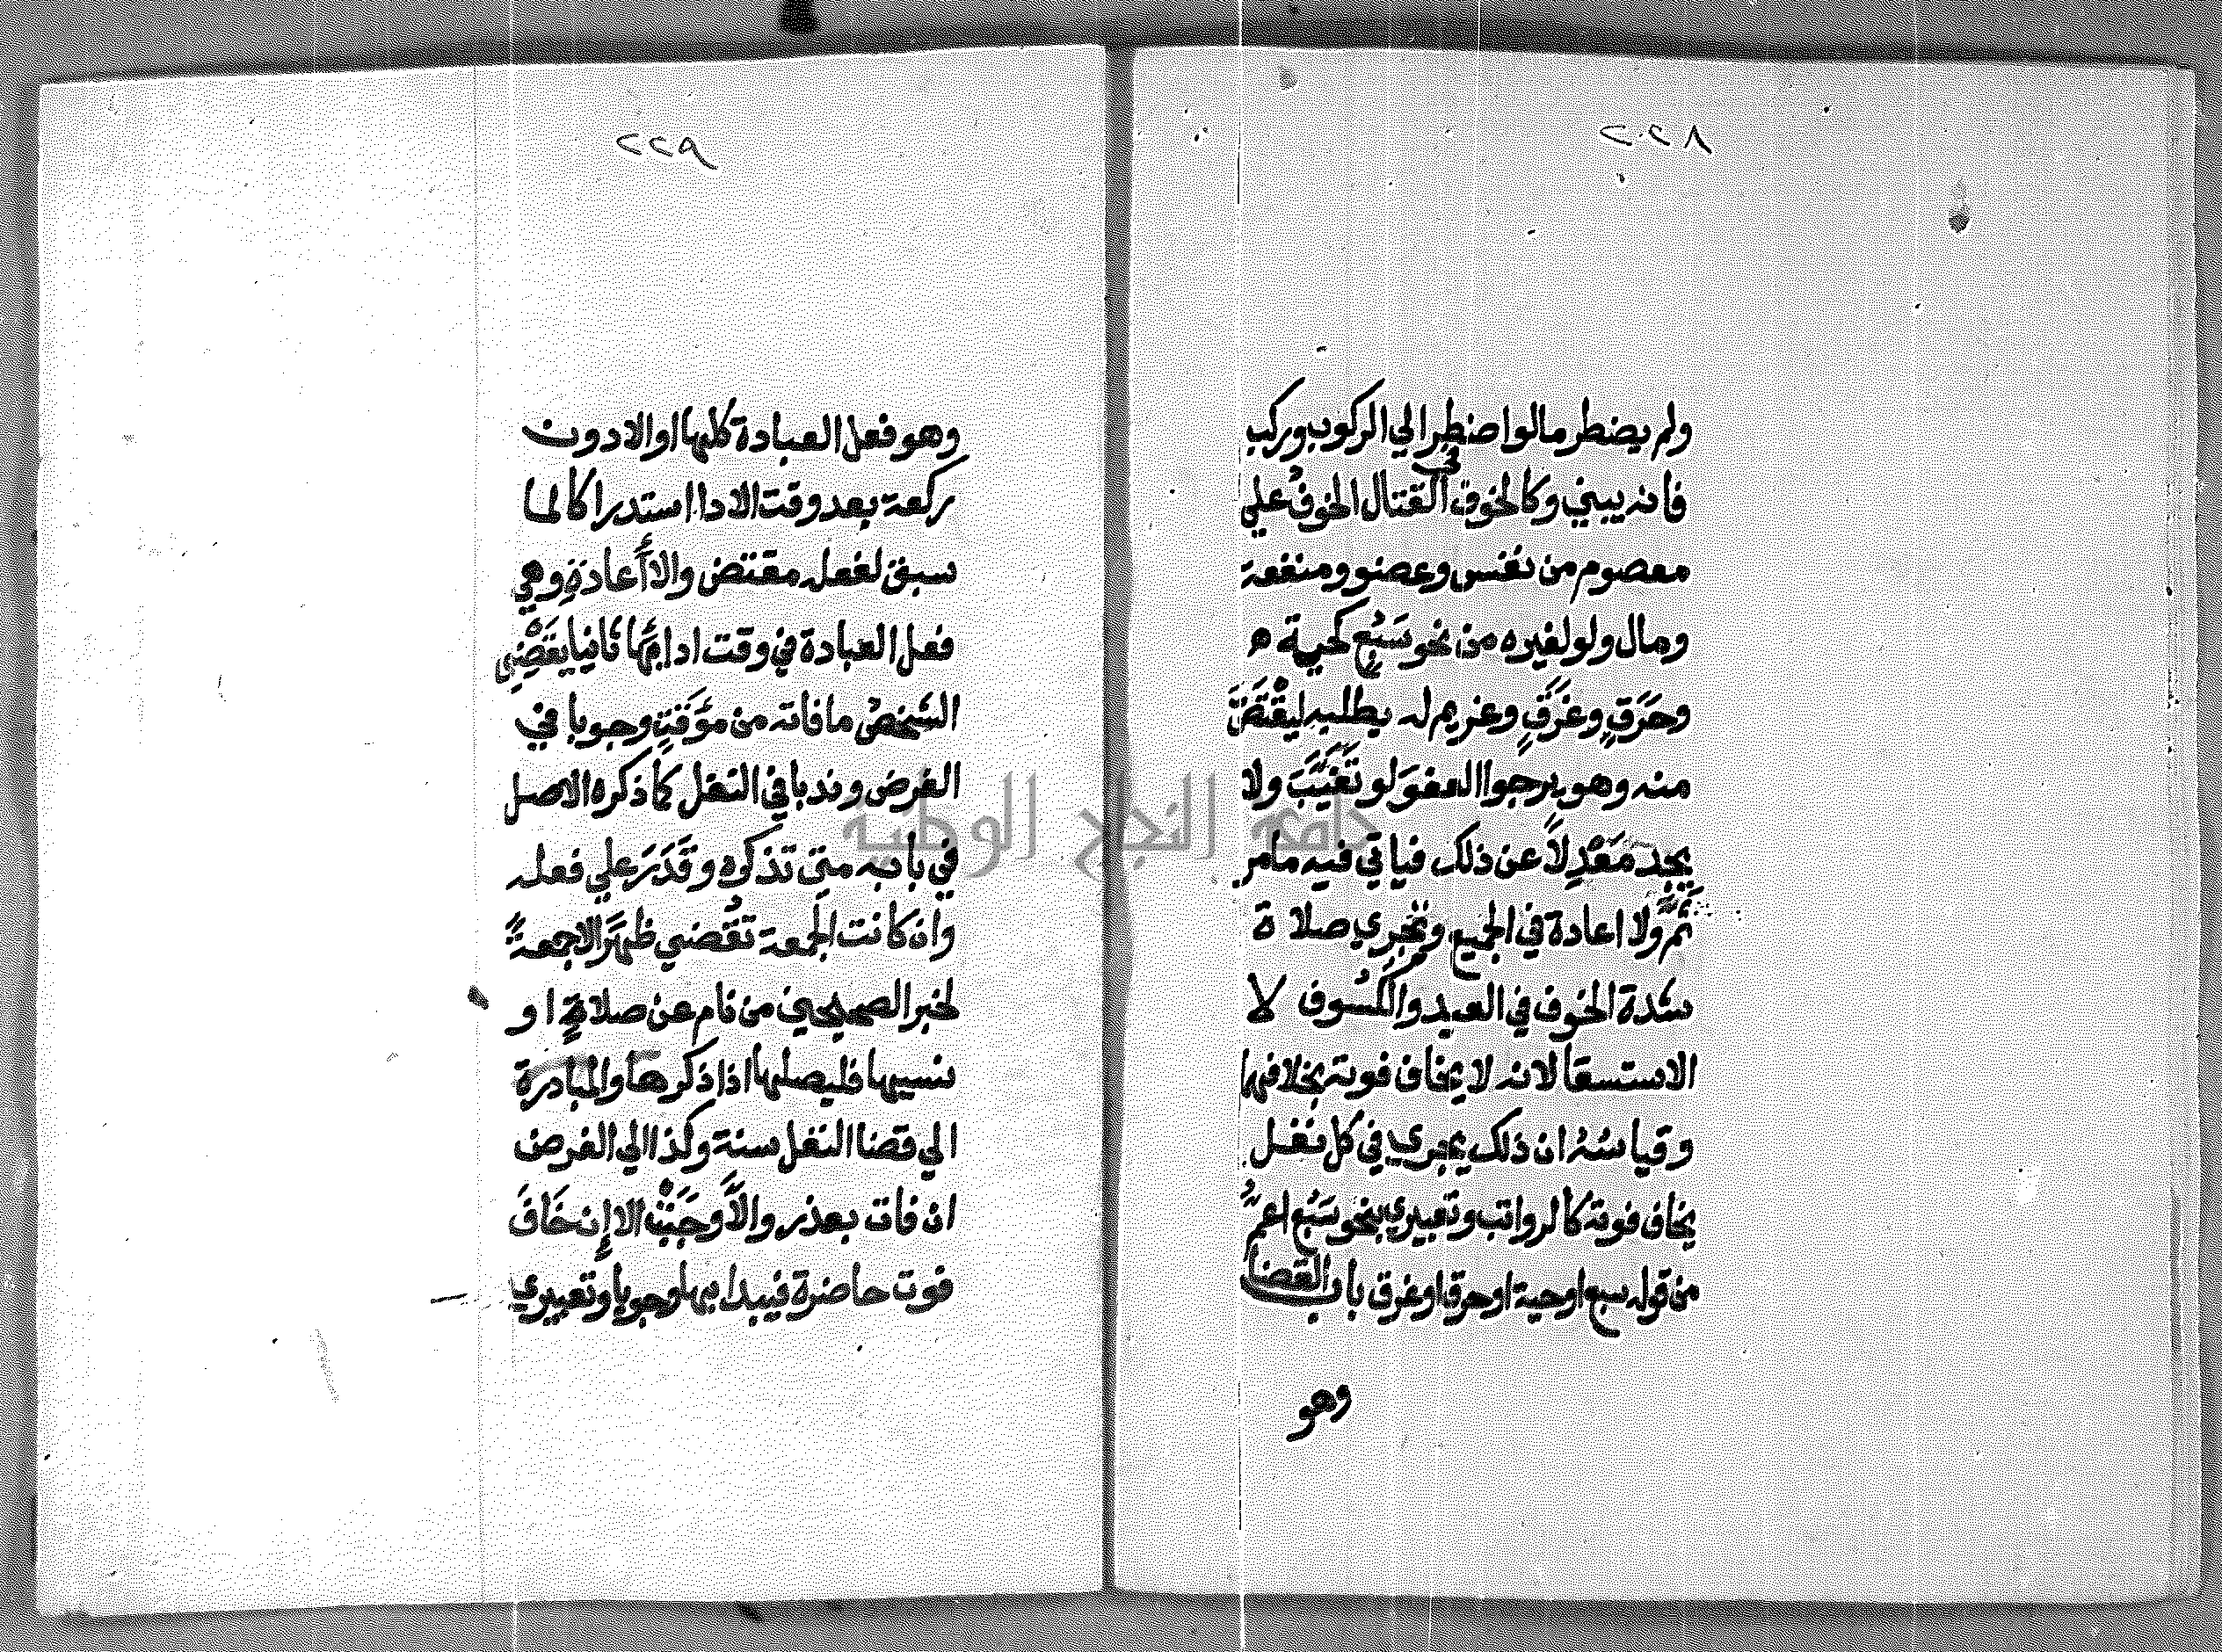 ٢٢٨
ولم يضطر مالوا ضطر الي الركوب وركب
فانه يبني وكالخوف في القتال الخوف علي
معصوم من نفس وعضو ومنفعة
ومال ولو لغيره من نحو سَبُعٍ كحية ه
وحَرَقٍ وغَرَقٍ وغريم له يطلبه ليَقْتَصَّ
منه وهو يرجوا العفوَ لو تَغَيَّبَ ولا
يجد مَعْدِلاً عن ذلك فياتي فيه مامر
ثَمَّ ولا اعادة في الجميع وتجري صلاة
شدة الخوف في العيد والكسوف لا
الاستسقا لانه لا يخاف فوته بخلافهما
وقياسُهُ ان ذلك يجري في كل نفل
يخاف فوته كالرواتب وتعبيري بنحو سَبُعٍ اعمُّ
من قوله سبع او حية او حرق او غرق باب القضا
وهو
٢٢٩
وهو فعل العبادة كلها او الا دون
ركعة بعد وقت الادا استدراكا لما
سبق لفعله مقتض والا أعادةٍ وهي
فعل العبادة في وقت ادائها ثانيا يَقْضِي
الشخصُ ما فاته من مؤقتٍ وجوبا في
الفرض وندبا في النفل كما ذكره الاصل
في بابه متي تذكره وقَدَرَ علي فعله
وان كانت الجمعة تُقْضي ظهرًا لا جمعةً
لخبر الصحيحين من نام عن صلاةٍ او
نسيها فليصلها اذا ذكرها والمبادرة
الي قضا النفل سنة وكذا الي الفرض
ان فات بعذر والاَّ وجَبَتْ الا إن خَافَ
فوت حاضرة فيبدا بها وجوبا وتعبيري
جامعة النجاح الوطنية